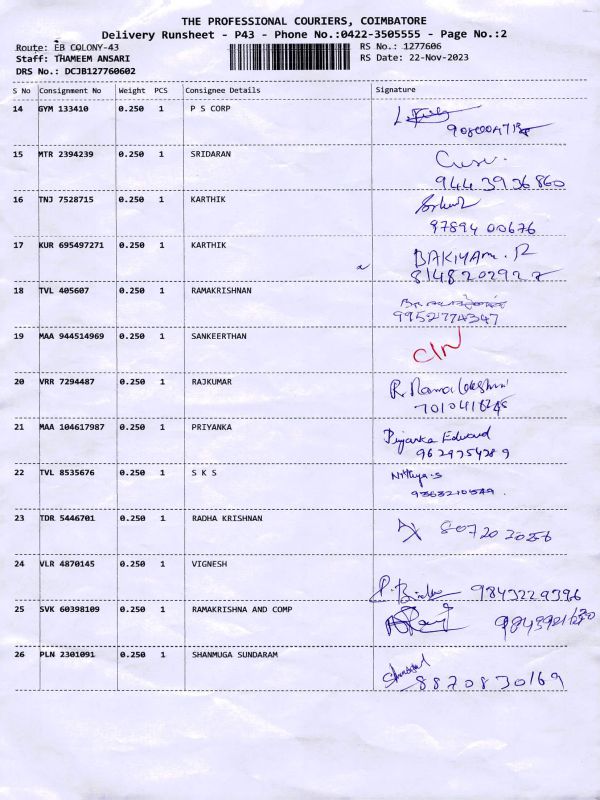 THE PROFESSIONAL COURIERS, COIMBATORE
Delivery Runsheet - P43 - Phone No.:0422-3505555 - Page No.:2
Route: EB COLONY-43 RS No.: 1277606
Staff: THAMEEM ANSARI RS Date: 22-Nov-2023
DRS No.: DCJB127760602
S No Consignment No Weight PCS Consignee Details Signature
14 GYM 133410 0.250 1 P S CORP
15 MTR 2394239 0.250 1 SRIDARAN
944 3936860
16 TNJ 7528715 0.250 1 KARTHIK
97894 00676
17 KUR 695497271 0.250 1 KARTHIK BAKIYAM. R
8148202927
18 TVL 405607 0.250 1 RAMAKRISHNAN
9952774347
19 MAA 944514969 0.250 1 SANKEERTHAN
20 VRR 7294487 0.250 1 RAJKUMAR R. Rama Lakshmi
21 MAA 104617987 0.250 1 PRIYANKA Priyanka Edward
22 TVL 8535676 0.250 1 S K S Nithya.S
23 TDR 5446701 0.250 1 RADHA KRISHNAN
24 VLR 4870145 0.250 1 VIGNESH
9843229396
25 SVK 60398109 0.250 1 RAMAKRISHNA AND COMP
26 PLN 2301091 0.250 1 SHANMUGA SUNDARAM
8870830169